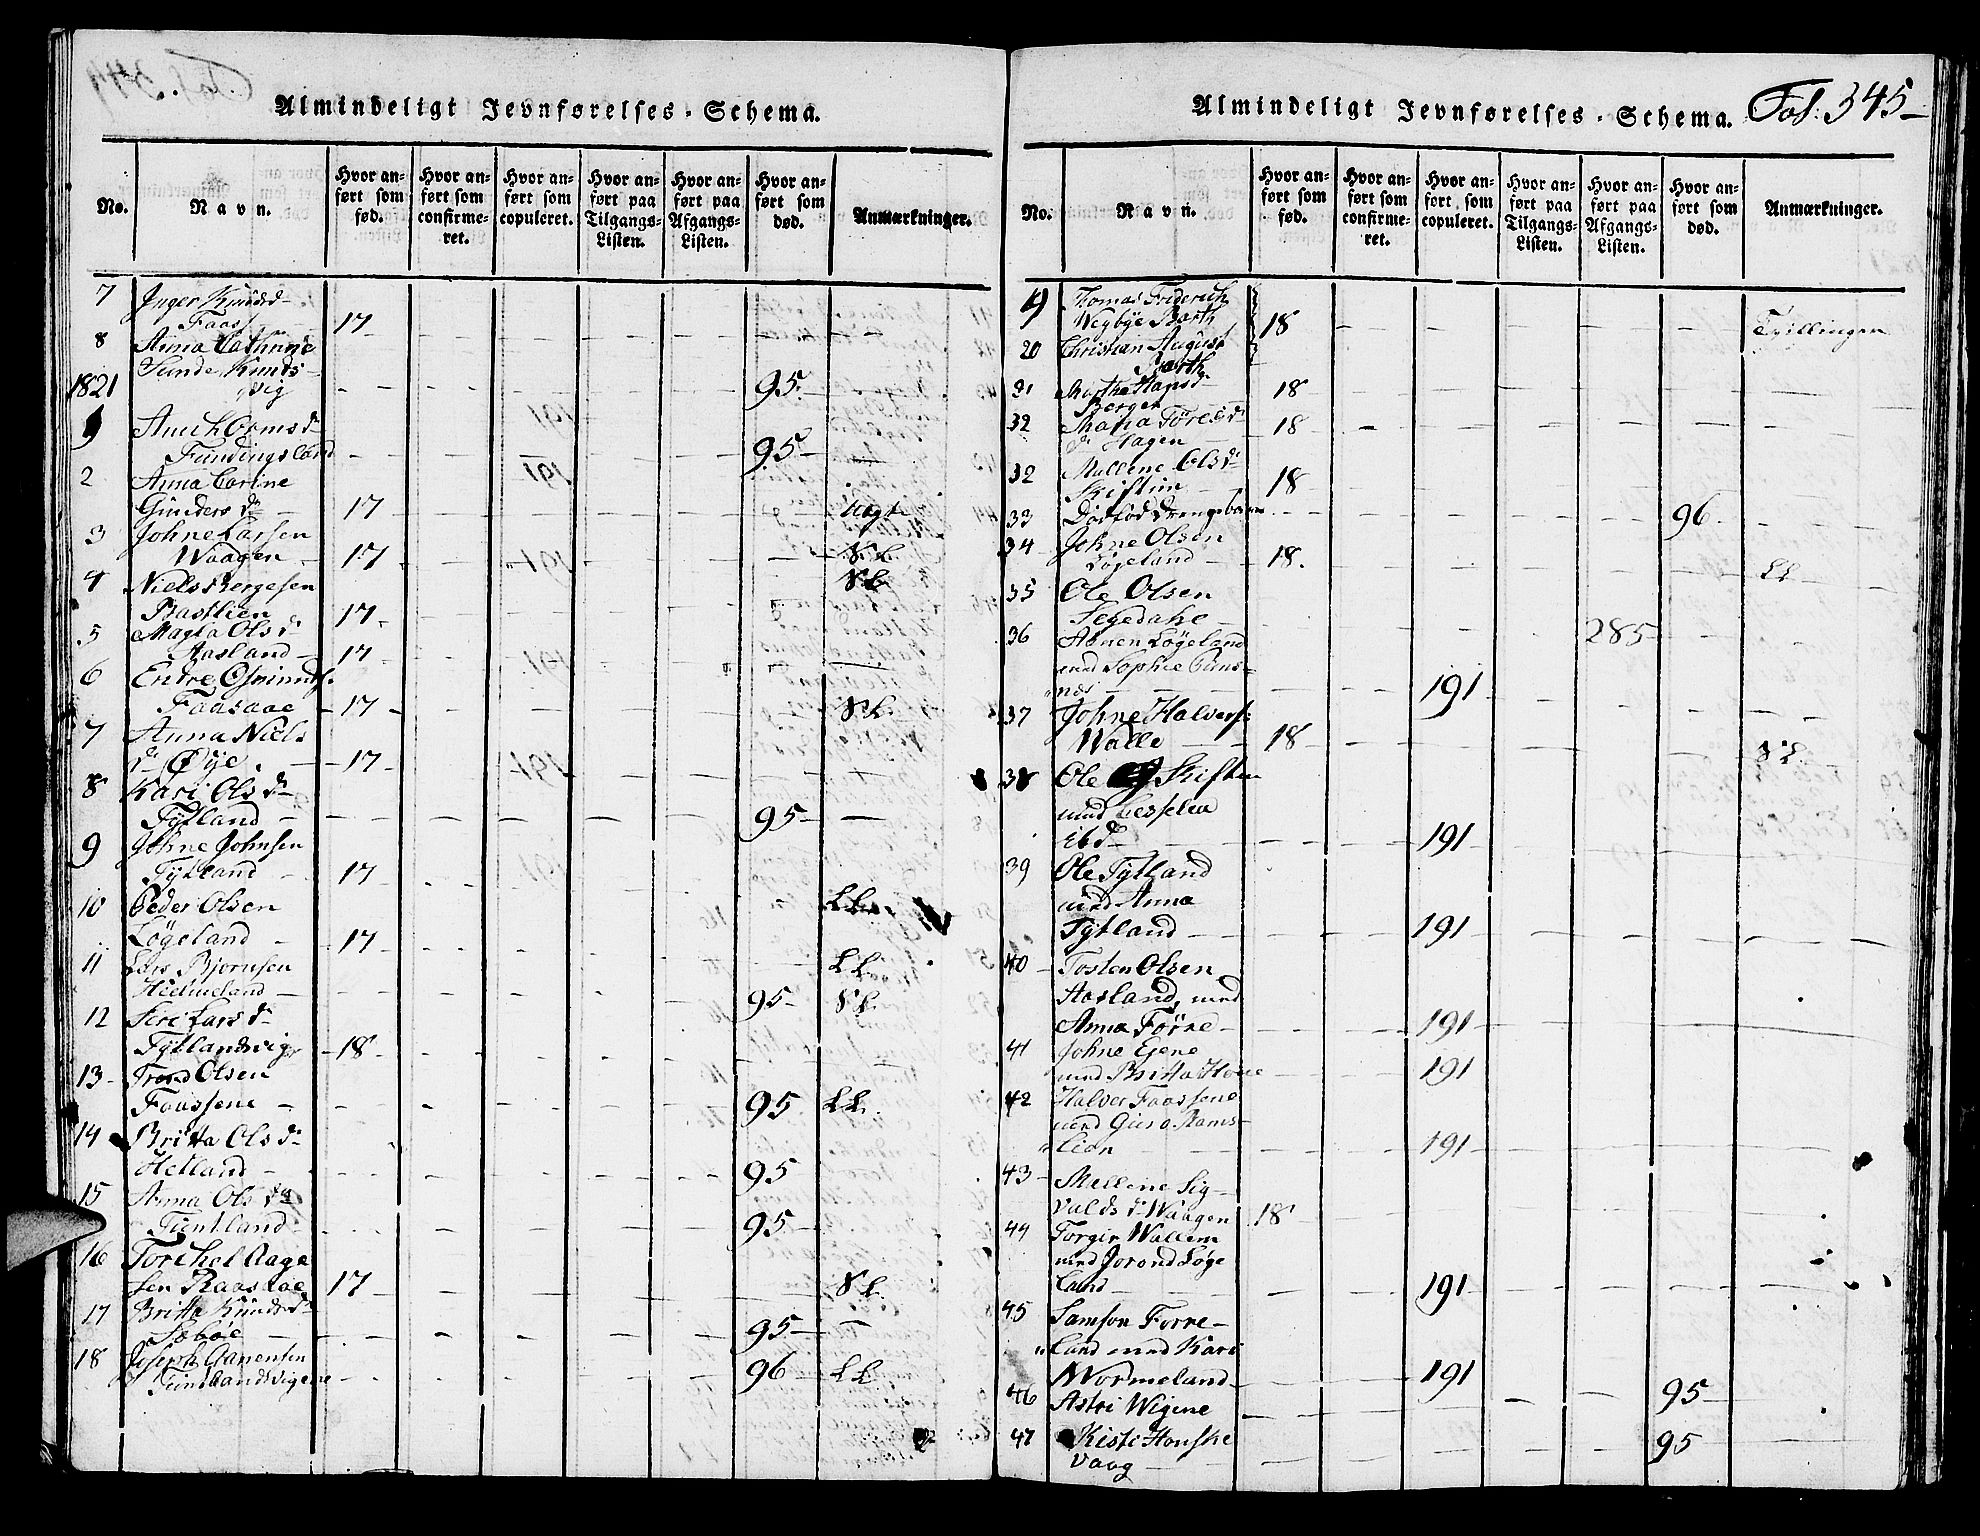 Almindeligt Jevnførelses-Schema.
No.
Navn.
Hvor anført som fød.
Hvor anført som confirmeret.
Hvor anført som copuleret.
Hvor anført paa Tilgangs-Listen.
Hvor anført paa Afgangs-Listen.
Hvor anført som død.
Anmærkninger.
7 Inger Knudsd-
Faas 17
8 Anna Cathrine
Sunde Knuds-
1821 vig 95.
1 Ormsd-
Fundingsland 95-
2 Anna Corine
Gunders dr 17 Uægt
3 Johne Larsen
Waagen 17 SL.
4 Niels Bergesen SL
Bastlien 17
5 Magla Ols dr
Aasland 17
6 Endre Osmunds.
Faasaae 17 SL.
7 Anna Niels
dr Øye. 17
8 Kari Ols dr
Tytland 95-
9 Johne Johnsen
Tytland 17
10 Peder Olsen LL.
Løgeland 17
11 Lars Bjørnsen LL.
Hielmeland 95- SL.
12 Siri Lars dr
Tytlandsvig 18
13- Trond Olsen
Faassene 95 LL.
14 Britta Ols dr
Hetland 95
15 Anna Ols dr
Tuntland 95-
16 Torchel Aage
sen Raassaae 17 SL.
17 Britta Knuds dr
Søbøe 95-
18 Joseph Aanensen 96 LL
Tuntlandsvigene
Almindeligt Jevnførelses-Schema. Fol. 345-
No.
Navn.
Hvor anført som fød.
Hvor anført som confirmeret.
Hvor anført som copuleret.
Hvor anført paa Tilgangs-Listen.
Hvor anført paa Afgangs-Listen.
Hvor anført som død.
Anmærkninger.
19 Thomas Friderich
Wegbye Barth 18 Tvillingen
20 Christian August
Barth
21 Marthe Hansd- 18
Berger
32 Maria Torels dr 18
dr Hagen
32 Mallene Ols dr
Skiftun 18
33 Dødfød Drengebarn 96.
34 Johne Olsen
Løgeland 18. LL
35 Ole Olsen
Segedahl 285
36 Aanen Løgeland
med Sophie Tuns-
næs 191
37 Johne Halvors.
Walle 18 SL.
38 Ole Skiftun
med Cesselia
ibd 191
39 Ole Tytland
med Anna
Tytland 191
40 Tosten Olsen
Aasland, med
Anna Førre- 191
41 Johne Eiene
med Britta Houe 191
42 Halvor Faassene
med Guro Rams-
lien 191
43- Mallene Sig-
valds dr Waagen 18
44 Torgir Wallem
med Jorond Løge
land 191
45 Samson Forre-
land med Kari
Wormeland 191
46 Astri Wigene 95-
47 Kisti Honske 95
vaag